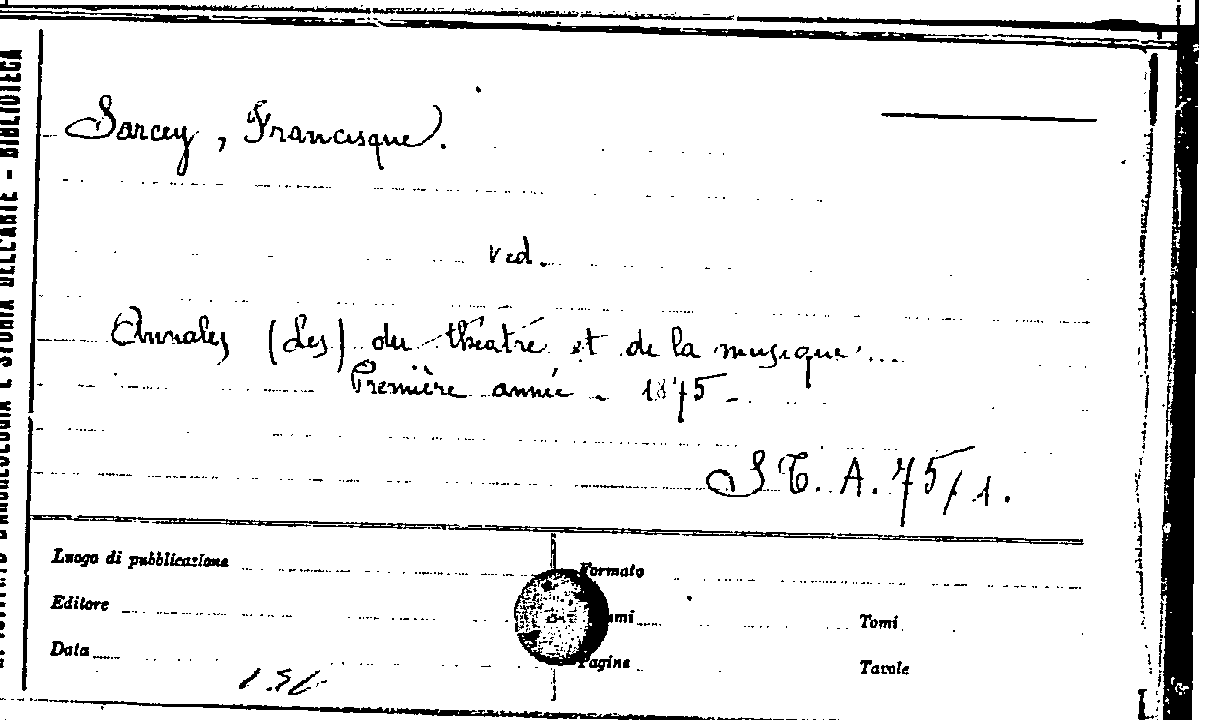 Sarcey, Francisque.
ved.
Annales (Les) du théatre et de la musique...
Première année - 1875 -
ST. A. 75/1.
Luogo di pubblicazione
Formato
Editore
Tomi
Data
Pagine
Tavole
D'ARCHEOLOGIA E STORIA DELL'ARTE - BIBLIOTECA